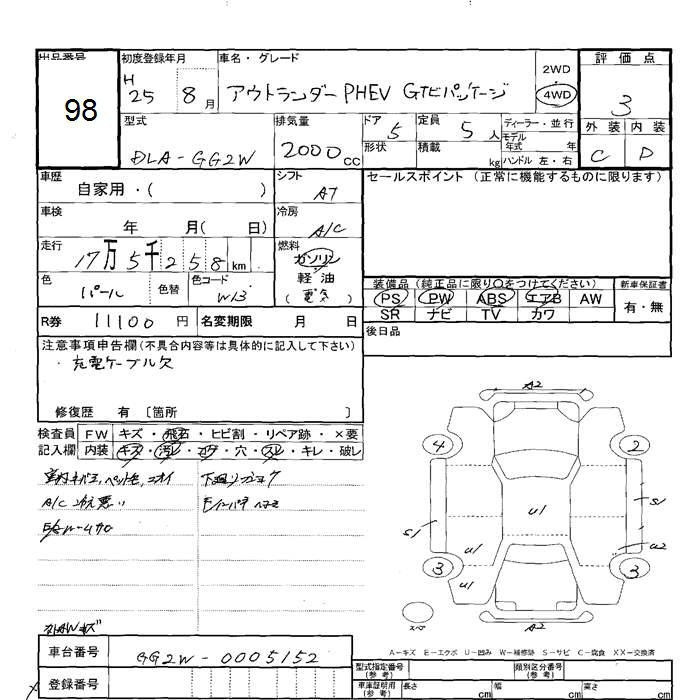 出品番号 初度登録年月 車名・グレード 評価点
98
H 25 8月
アウトランダーPHEV Gナビパッケージ
2WD
4WD
3
型式 排気量 ドア 定員 ディーラー・並行 外装 内装
DLA-GG2W 2000cc 5 5人
モデル年式 年
形状 積載 kg ハンドル 左・右
C D
車歴 シフト セールスポイント (正常に機能するものに限ります)
自家用・( ) AT
車検 冷房
年 月( 日) A/C
走行 燃料
17万5千258km ガソリン
軽油
(電気)
色 色替 色コード
パール W13
装備品 (純正品に限り○をつけてください) 新車保証書
PS PW ABS エアB AW 有・無
SR ナビ TV カワ
R券 11100円 名変期限 月 日
後日品
注意事項申告欄(不具合内容等は具体的に記入して下さい)
・充電ケーブル欠
修復歴 有 〔箇所 〕
検査員 FW キズ・飛石・ヒビ割・リペア跡・×要
記入欄 内装 キズ・汚レ・コゲ・穴・スレ・キレ・破レ
A/C
A2
4 2
S1 U1 S1
U1 U2
3 3
U1
スペア
A2
A-キズ E-エクボ U-凹み W-補修跡 S-サビ C-腐食 XX-交換済
車台番号 GG2W-0005152
型式指定番号(参考) 類別区分番号(参考)
登録番号
車庫証明用(参考) 長さ cm 幅 cm 高さ cm